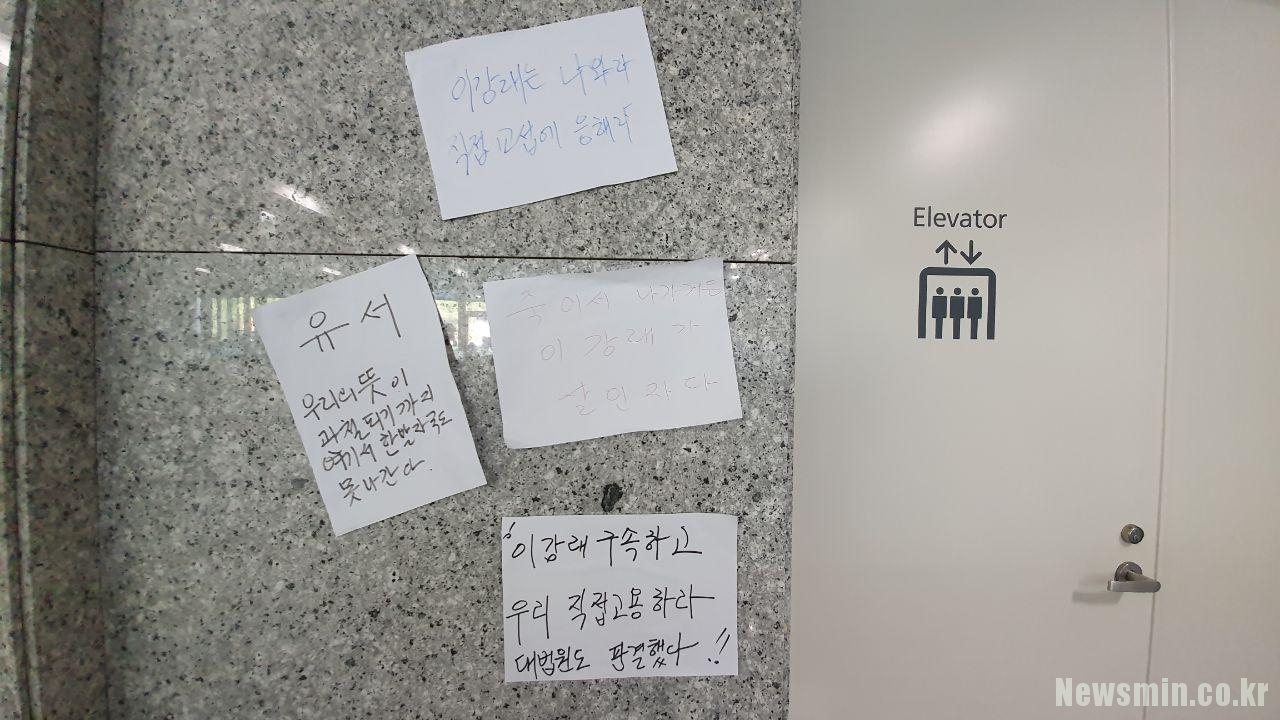 이강래는 나와라
직접 교섭에 응해라
유서
우리의 뜻이
관철되기까지
여기서 한발자국도
못나간다.
죽어서 나가거든
이강래가
살인자다
이강래 구속하고
우리 직접고용하라
대법원도 판결했다!!
Elevator
Newsmin.co.kr